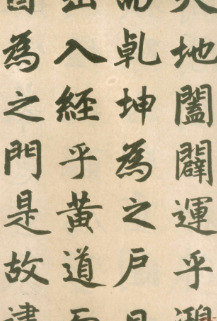 天地闔闢運乎鴻
而乾坤為之戶日
出入經乎黃道而
酉為之門是故建